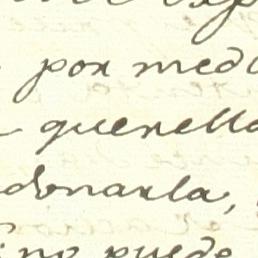 por medi
querella
donarla,
no puede